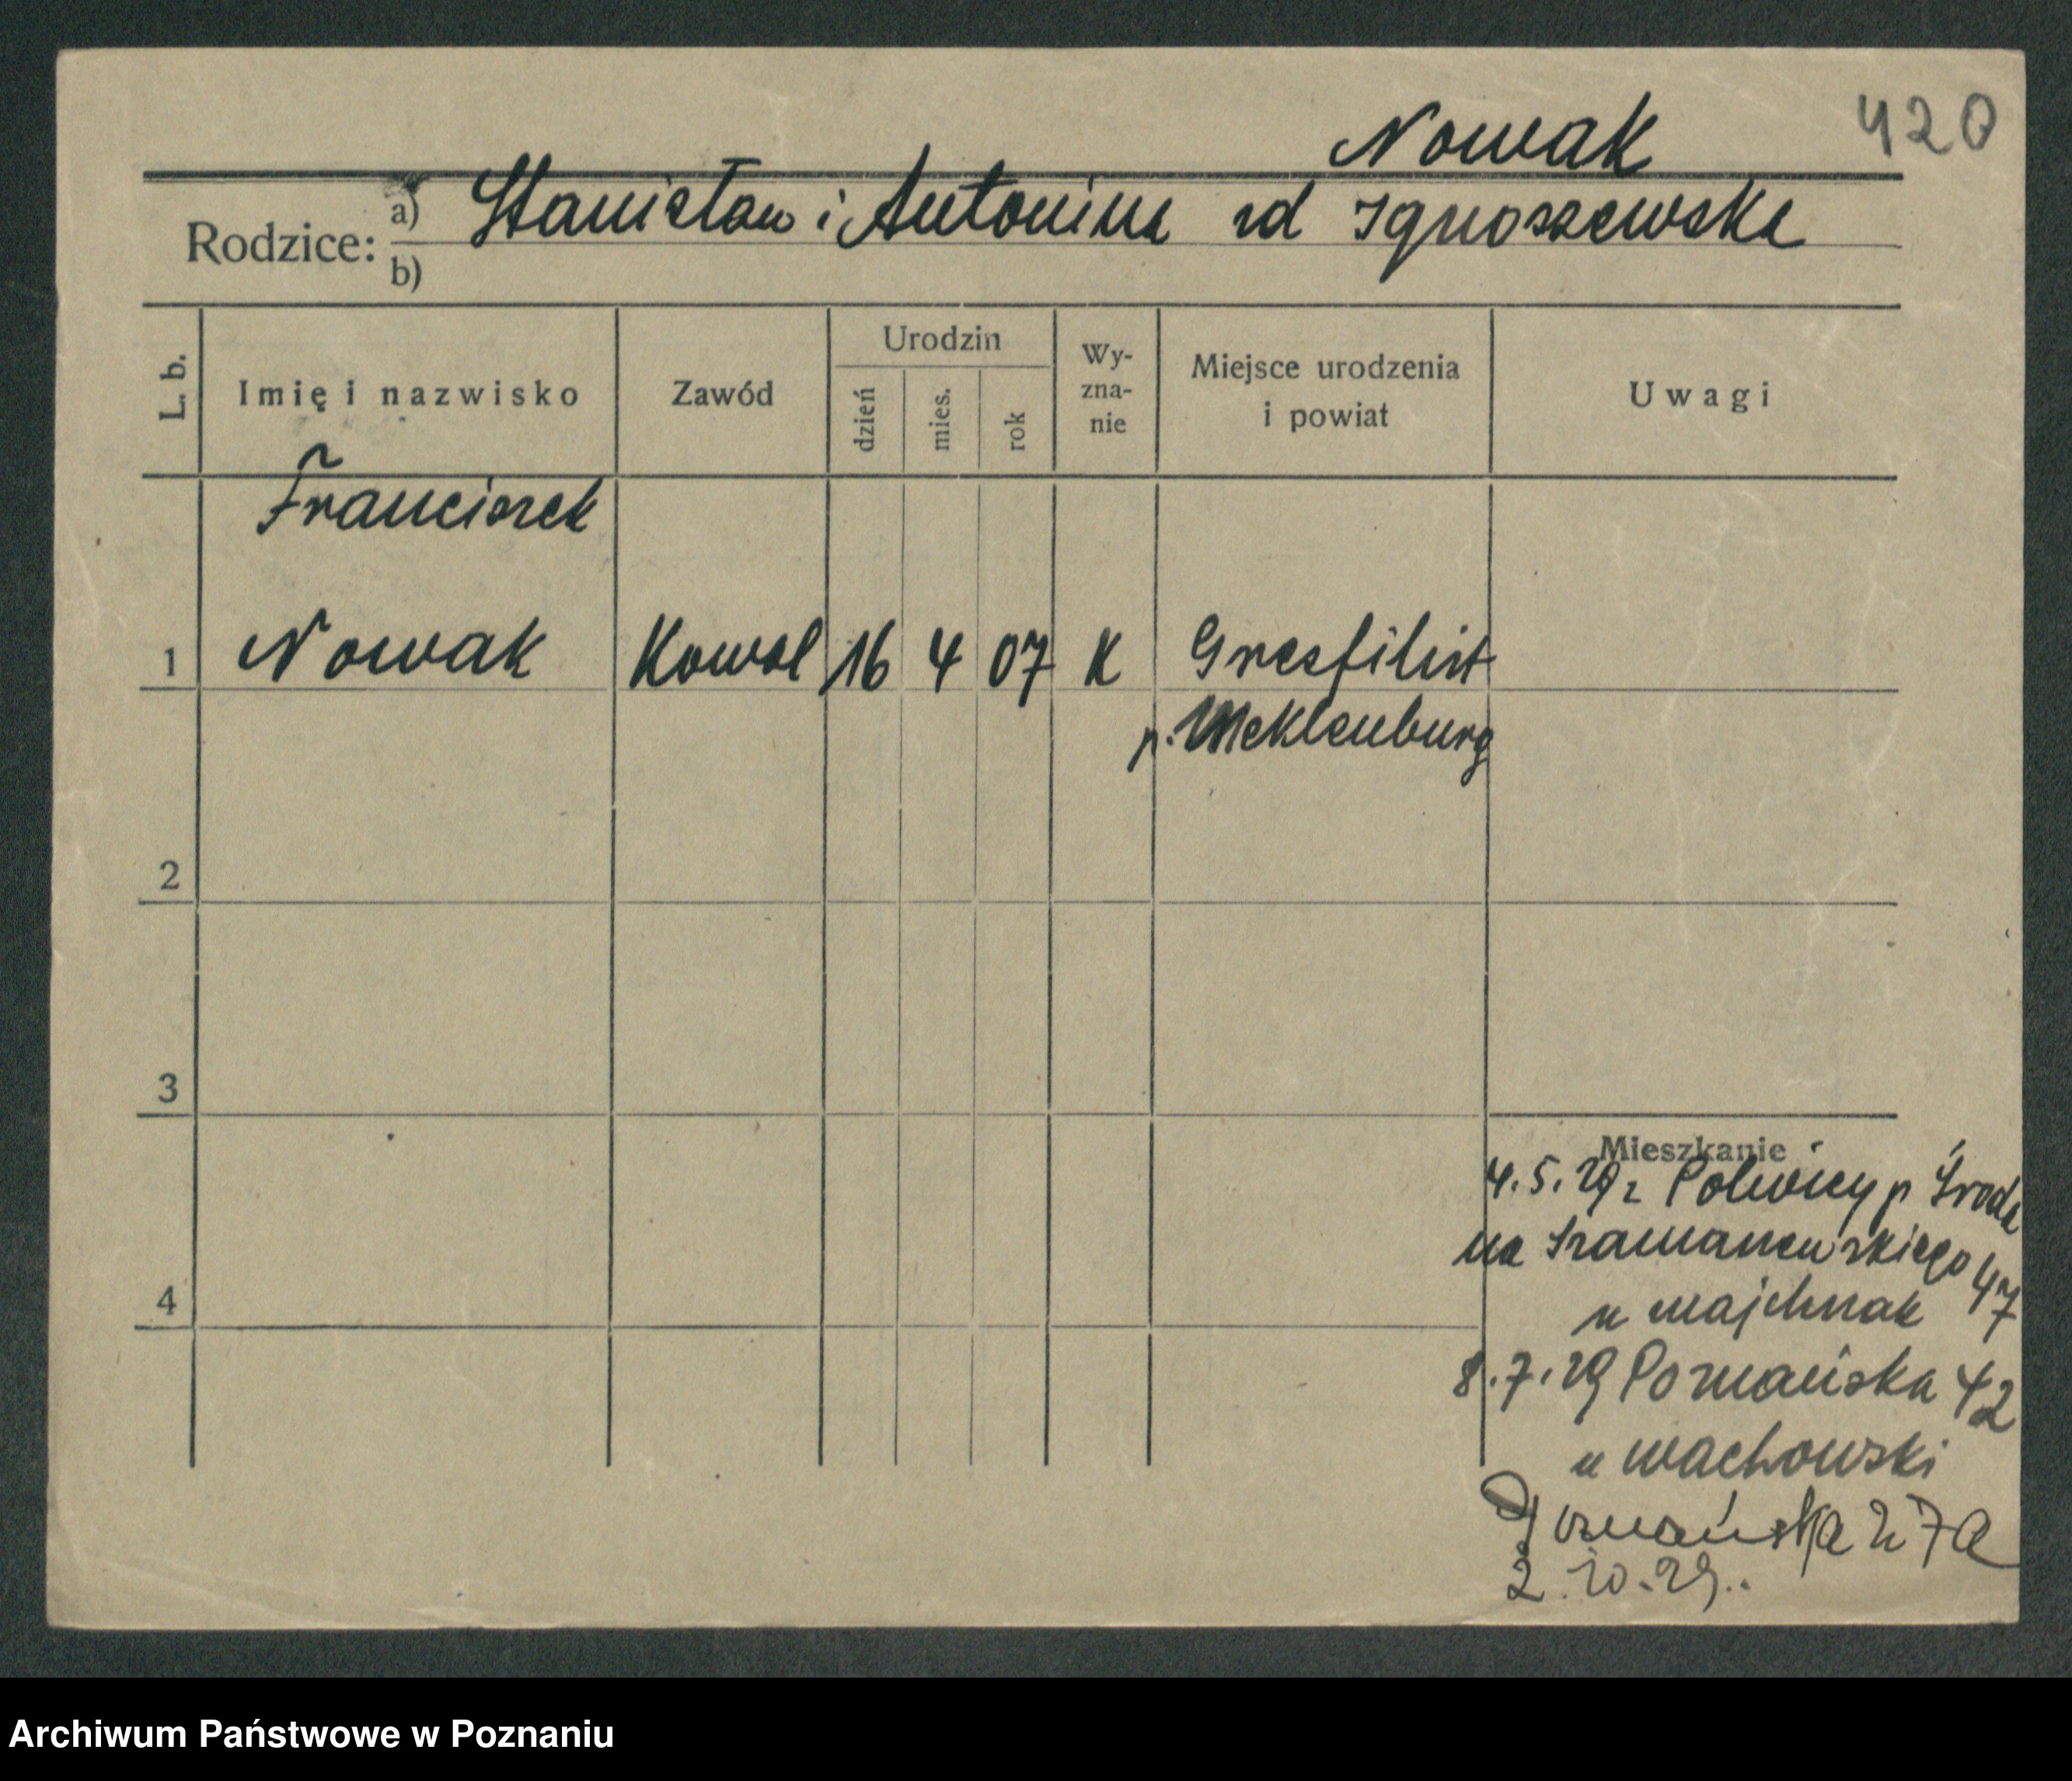 420
Nowak
Rodzice: a) Stanisław i Antonina zd Ignoszewska
b)
L. b.
Imię i nazwisko
Zawód
Urodzin
dzień
mies.
rok
Wy-
zna-
nie
Miejsce urodzenia
i powiat
Uwagi
Franciszek
1 Nowak Kowal 16 4 07 K
p. Meklenburg
2
3
4
Mieszkanie
4.5.29 z p Środa
na 47
u Majchrzak
8.7.29 Poznańska 42
u Wachowski
Poznańska
2.10.29.
Archiwum Państwowe w Poznaniu